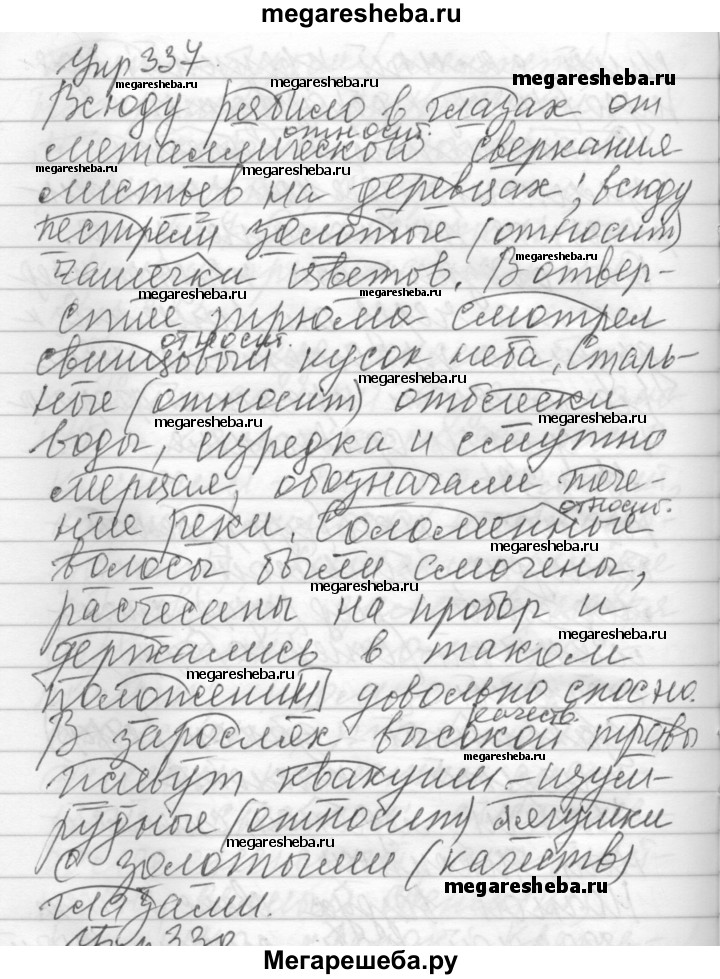 megaresheba.ru
Упр 337.
megaresheba.ru
megaresheba.ru
Всюду рябило в глазах от
относит.
металлической сверкания
megaresheba.ru
megaresheba.ru
листьев на деревцах; всюду
пестрели золотые (относит)
megaresheba.ru
чашечки цветов. В отвер-
megaresheba.ru
megaresheba.ru
стие трюма смотрел
относит.
свинцовый кусок неба. Сталь-
megaresheba.ru
megaresheba.ru
ные (относит) отблески
megaresheba.ru
megaresheba.ru
воды, изредка и смутно
мерцая, обозначали тече-
относит.
ние реки. Соломенные
megaresheba.ru
волосы были смочены,
megaresheba.ru
расчесаны на пробор и
megaresheba.ru
держались в таком
megaresheba.ru
положении довольно сносно.
качеств.
В зарослях высокой травы
megaresheba.ru
megaresheba.ru
плывут квакуши – изум-
рудные (относит) лягушки
megaresheba.ru
с золотыми (качеств)
megaresheba.ru
глазами.
Упр 338
Мегарешеба.ру